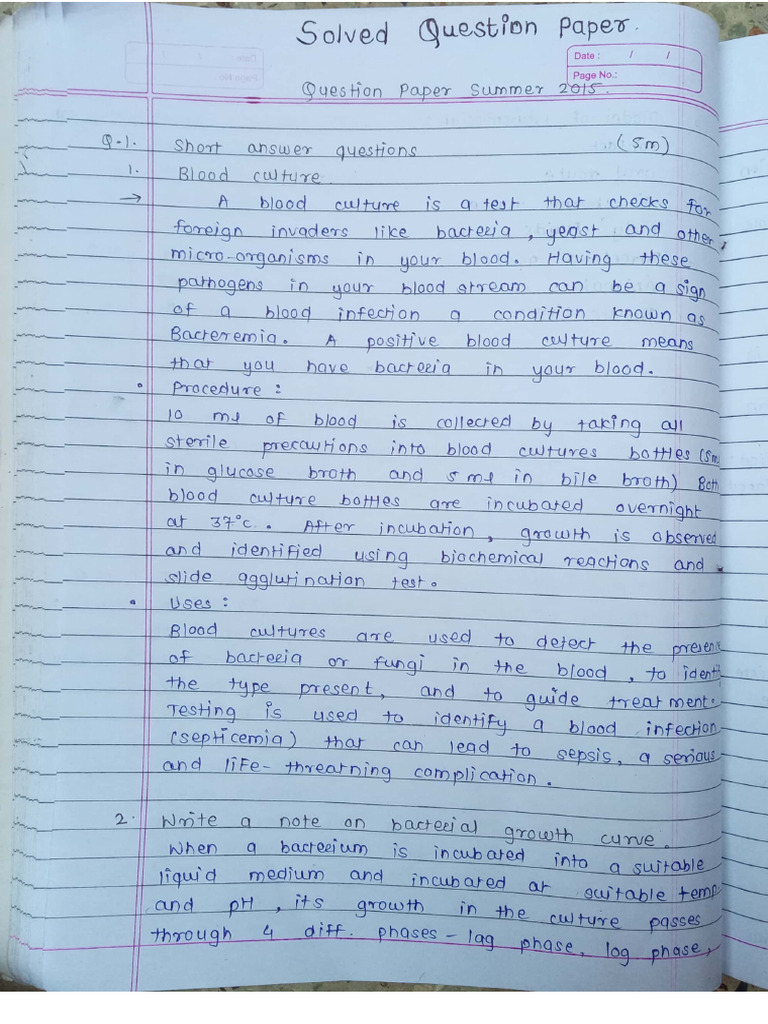 Solved Question Paper.
Date : / /
Page No.:
Question Paper Summer 2015.
Q.1. Short answer questions (5m)
1. Blood culture.
→ A blood culture is a test that checks for
foreign invaders like bacteria, yeast and other,
micro-organisms in your blood. Having these
pathogens in your blood stream can be a sign
of a blood infection a condition known as
Bacteremia. A positive blood culture means
that you have bacteria in your blood.
• Procedure :
10 ml of blood is collected by taking all
sterile precautions into blood cultures bottles (5ml
in glucose broth and 5 ml in bile broth) Both
blood culture bottles are incubated overnight
at 37°c.. After incubation, growth is observed
and identified using biochemical reactions and
slide agglutination test.
• Uses :
Blood cultures are used to detect the presence
of bacteria or fungi in the blood, to identi
the type present, and to guide treatment.
Testing is used to identify a blood infection
(septicemia) that can lead to sepsis, a serious
and life-threatning complication.
2. Write a note on bacterial growth curve.
When a bacterium is incubated into a suitable
liquid medium and incubated at suitable temp.
and pH, its growth in the culture passes
through 4 diff. phases - lag phase, log phase,